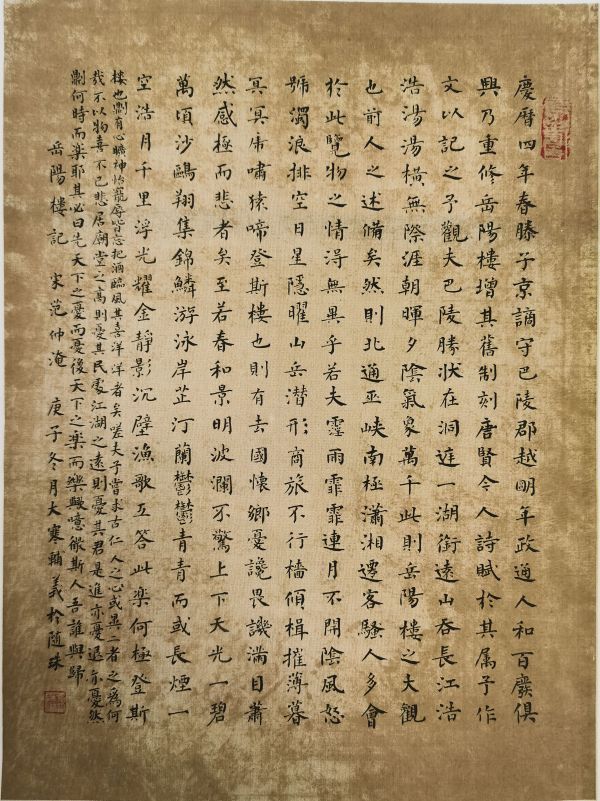 慶曆四年春滕子京謫守巴陵郡越明年政通人和百廢俱
興乃重修岳陽樓增其舊制刻唐賢今人詩賦於其属予作
文以記之予觀夫巴陵勝狀在洞庭一湖銜遠山吞長江浩
浩湯湯橫無際涯朝暉夕陰氣象萬千此則岳陽樓之大觀
也前人之述備矣然則北通巫峽南極瀟湘遷客騷人多會
於此覽物之情得無異乎若夫霪雨霏霏連月不開陰風怒
號濁浪排空日星隱曜山岳潛形商旅不行檣傾楫摧薄暮
冥冥虎嘯猿啼登斯樓也則有去國懷鄉憂讒畏譏滿目蕭
然感極而悲者矣至若春和景明波瀾不驚上下天光一碧
萬頃沙鷗翔集錦鱗游泳岸芷汀蘭鬱鬱青青而或長煙一
空浩月千里浮光耀金靜影沉壁漁歌互答此楽何極登斯
樓也則有心曠神怡寵辱皆忘把酒臨風其喜洋洋者矣嗟夫予嘗求古仁人之心或異二者之為何
哉不以物喜不已悲居廟堂之高則憂其民處江湖之遠則憂其君是進亦憂退亦憂然
則何時而楽耶其必曰先天下之憂而憂後天下之楽而樂歟噫微斯人吾誰與歸
岳陽樓記 宋范仲淹 庚子冬月大寒輔義於随珠